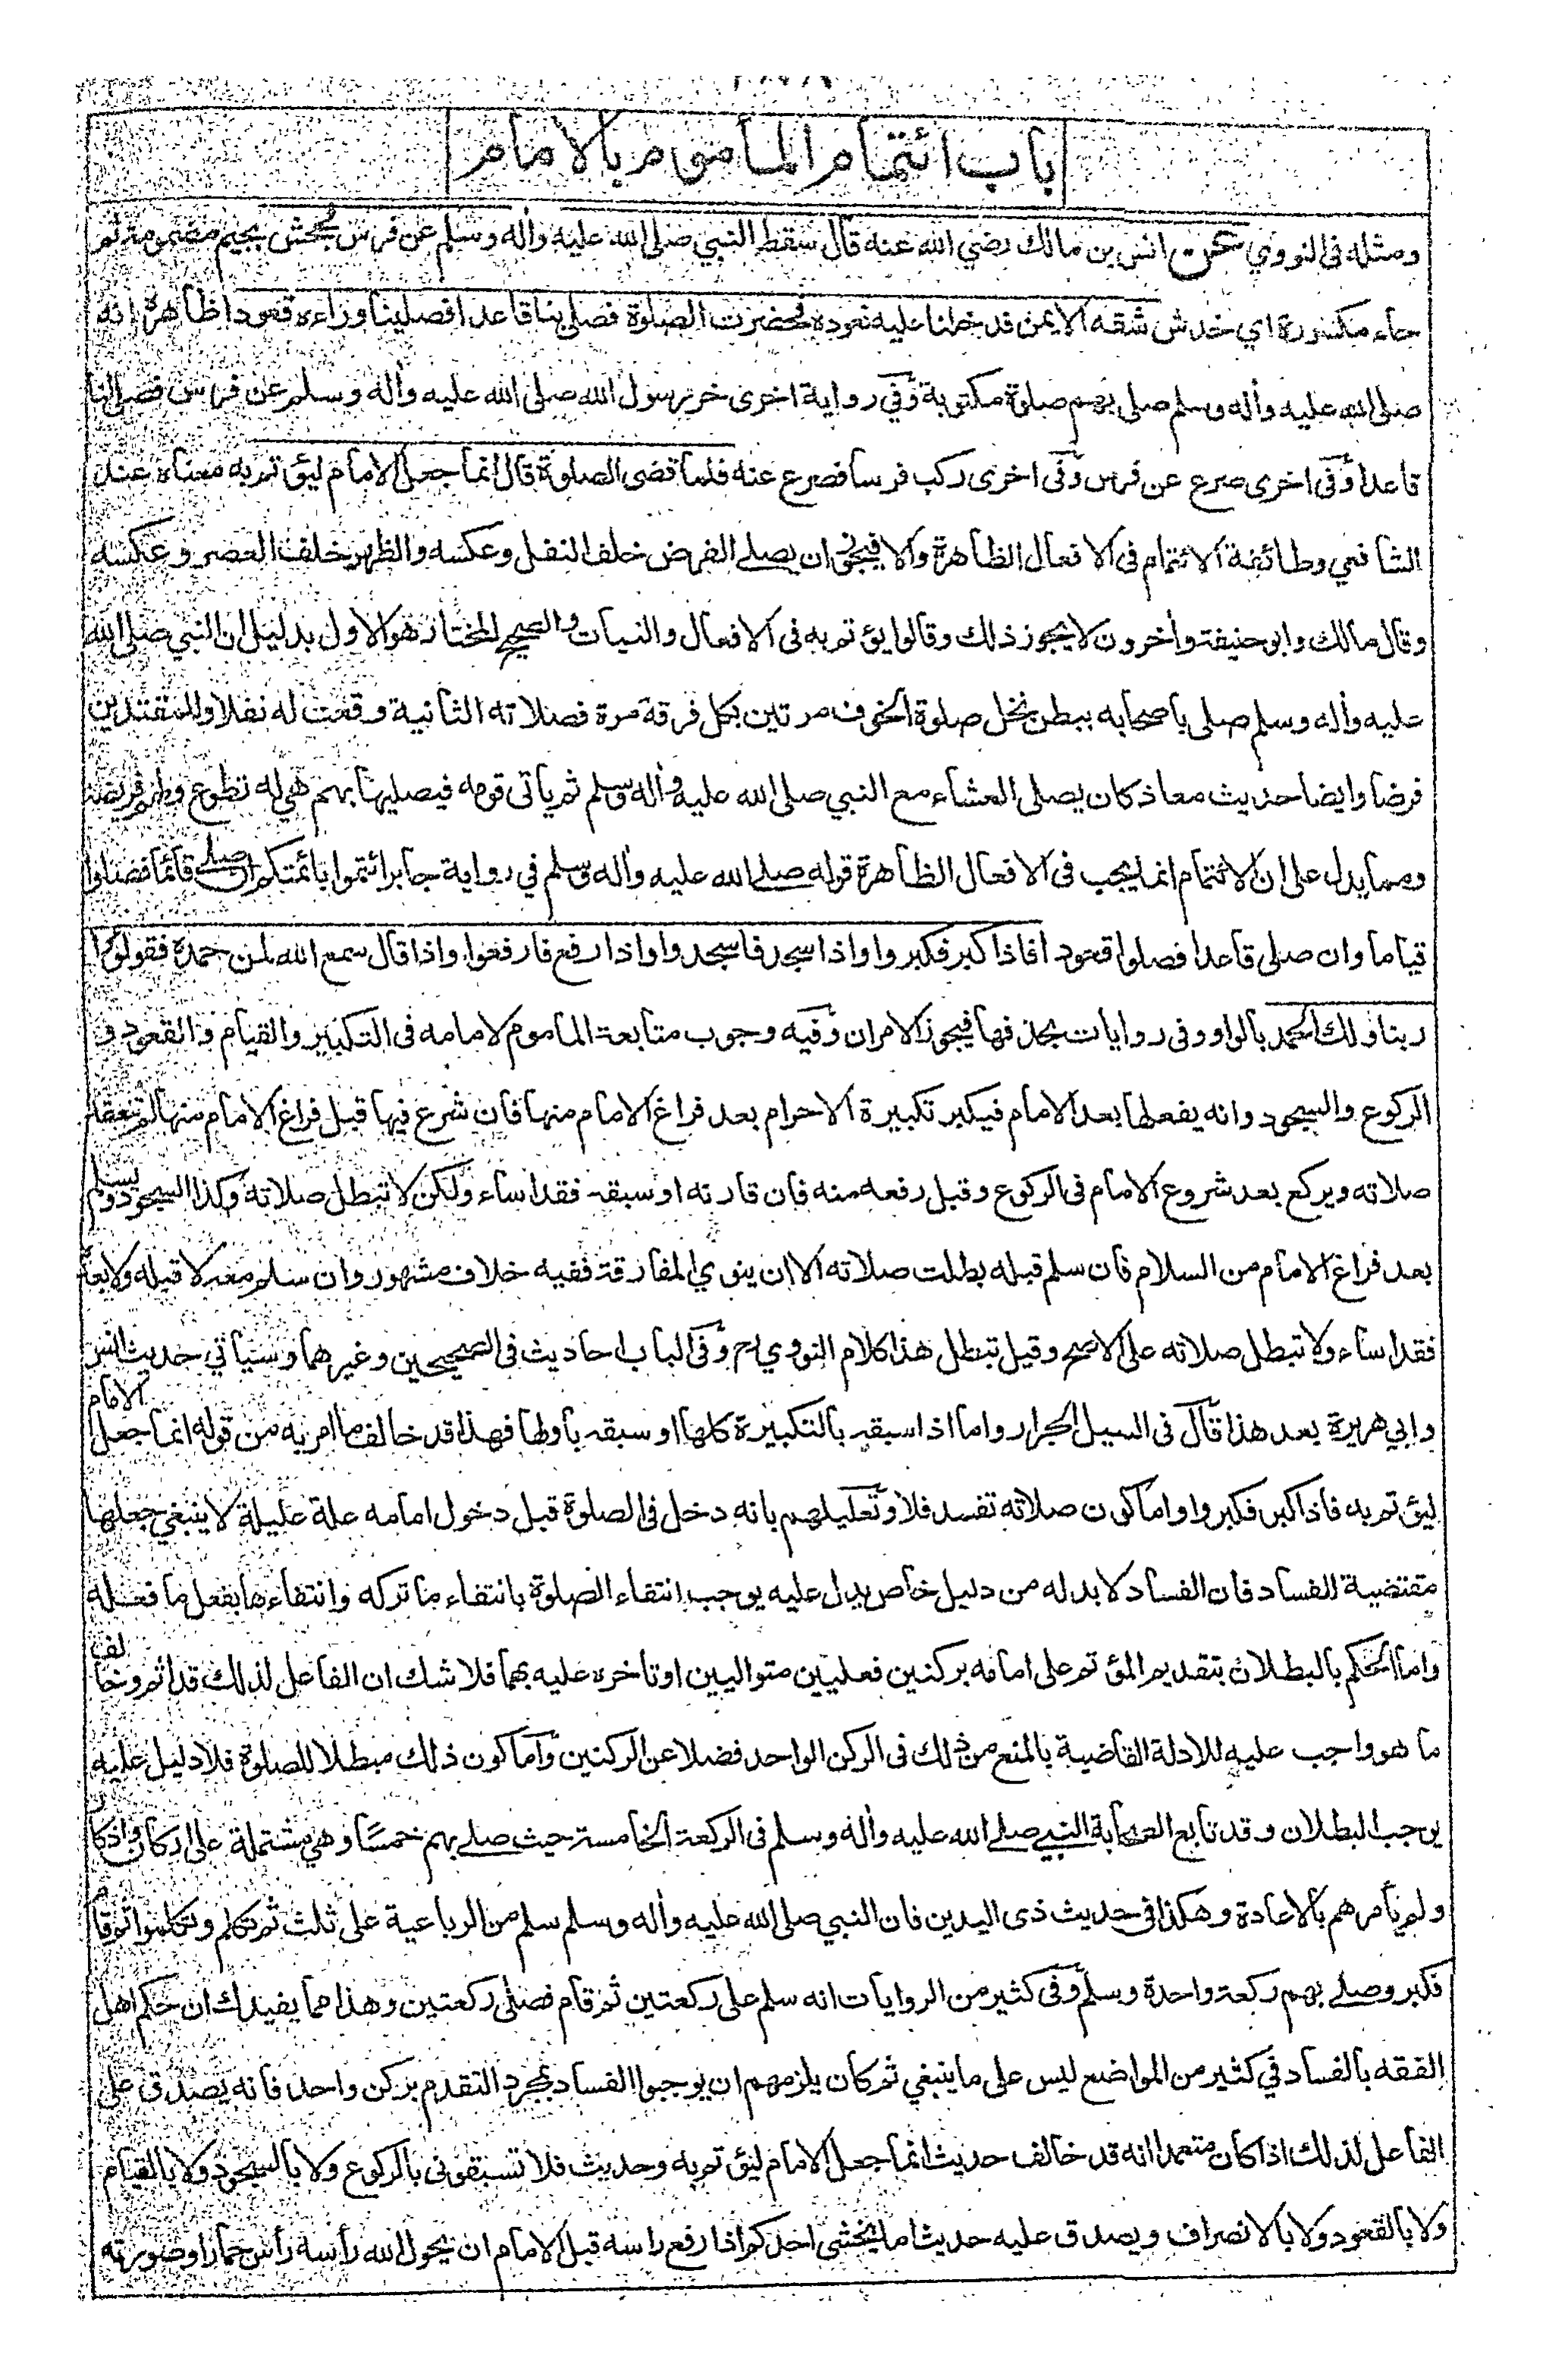 باب ائتمام المأموم بالامام
ومثله فى النووي عن انس بن مالك رضي الله عنه قال سقط النبي صلى الله عليه وأله وسلم عن فرس فجحش بجيم مضمومة ثم
حاء مكسورة اي خدش شقه الايمن قد خلنا عليه نعوده فحضرت الصلوة فصلى بنا قاعدا فصلينا وراءه قعودا ظاهرة انه
صلى الله عليه وأله وسلم صلى بهم صلوة مكتوبة وفي رواية اخرى خر رسول الله صلى الله عليه وأله وسلم عن فرس فصلى لنا
قاعدا وفى اخرى صرع عن فرس وفى اخرى ركب فرسا فصرع عنه فلما قضى الصلوة قال انما جعل الامام ليؤتم به معناه عند
الشافعي وطائفة الائتمام فى الافعال الظاهرة والا فيجوز ان يصلے الفرض خلف النفل وعكسه والظهر خلف العصر وعكسه
وقال مالك وابو حنيفة وأخرون لا يجوز ذلك وقالوا يؤتم به فى الافعال والنيات والصحيح المختار هو الاول بدليل ان النبي صلى الله
عليه وأله وسلم صلى باصحابه ببطن نخل صلوة الخوف مرتين بكل فرقة مرة فصلاته الثانية وقعت له نفلا وللمقتدين
فرضا وايضا حديث معاذ كان يصلى العشاء مع النبي صلى الله عليه وأله وسلم ثم يأتى قومه فيصليها بهم هي له تطوع ولهم فريضة
ومما يدل على ان الائتمام انما يجب فى الافعال الظاهرة قوله صلے الله عليه وأله وسلم في رواية جابر ائتموا بائمتكم ان صلے قائما فصلوا
قياما وان صلى قاعدا فصلوا قعودا فاذا كبر فكبروا واذا سجد فاسجدوا واذا رفع فارفعوا واذا قال سمع الله لمن حمده فقولوا
ربنا ولك الحمد بالواو وفى روايات بحذفها فيجوز الامران وفيه وجوب متابعة الماموم لامامه فى التكبير والقيام والقعود و
الركوع والسجود وانه يفعلها بعد الامام فيكبر تكبيرة الاحرام بعد فراغ الامام منها فان شرع فيها قبل فراغ الامام منها لم تنعقد
صلاته ويركع بعد شروع الامام فى الركوع وقبل رفعه منه فان قارنه او سبقه فقد اساء ولكن لا تبطل صلاته وكذا السجود ويسلم
بعد فراغ الامام من السلام فان سلم قبله بطلت صلاته الا ان ينوي المفارقة ففيه خلاف مشهور وان سلم معه لا قبله ولا بعده
فقد اساء ولا تبطل صلاته على الاصح وقيل تبطل هذا كلام النووي رح وفى الباب احاديث فى الصحيحين وغيرهما وسيأتي حديث انس
وابي هريرة بعد هذا قال فى السيل الجرار واما اذا سبقه بالتكبيرة كلها او سبقه باولها فهذا قد خالف ما امر به من قوله انما جعل الامام
ليؤتم به فاذا كبر فكبروا واما كون صلاته تفسد فلا وتعليلهم بانه دخل فى الصلوة قبل دخول امامه علة عليلة لا ينبغي جعلها
مقتضية للفساد فان الفساد لا بد له من دليل خاص يدل عليه يوجب انتفاء الصلوة بانتفاء ما تركه وانتفاءها بفعل ما فعله
واما الحكم بالبطلان بتقديم المؤتم على امامه بركنين فعليين متواليين او تاخره عليه بهما فلا شك ان الفاعل لذلك قد اثم وخالف
ما هو واجب عليه للادلة القاضية بالمنع من ذلك فى الركن الواحد فضلا عن الركنين واما كون ذلك مبطلا للصلوة فلا دليل عليه
يوجب البطلان وقد تابع الصحابة النبي صلے الله عليه وأله وسلم فى الركعة الخامسة حيث صلے بهم خمسا وهي مشتملة على اركان واذكار
ولم يأمرهم بالاعادة وهكذا فى حديث ذى اليدين فان النبي صلى الله عليه وأله وسلم سلم من الرباعية على ثلث ثم تكلم وتكلموا ثم قام
فكبر وصلے بهم ركعة واحدة وسلم وفى كثير من الروايات انه سلم على ركعتين ثم قام فصلى ركعتين وهذا مما يفيدك ان حكم اهل
الفقه بالفساد في كثير من المواضع ليس على ما ينبغي ثم كان يلزمهم ان يوجبوا الفساد بمجرد التقدم بركن واحد فانه يصدق على
الفاعل لذلك اذا كان متعمدا انه قد خالف حديث انما جعل الامام ليؤتم به وحديث فلا تسبقونى بالركوع ولا بالسجود ولا بالقيام
ولا بالقعود ولا بالانصراف ويصدق عليه حديث اما يخشى احدكم اذا رفع راسه قبل الامام ان يحول الله رأسه رأس حمار او صورته